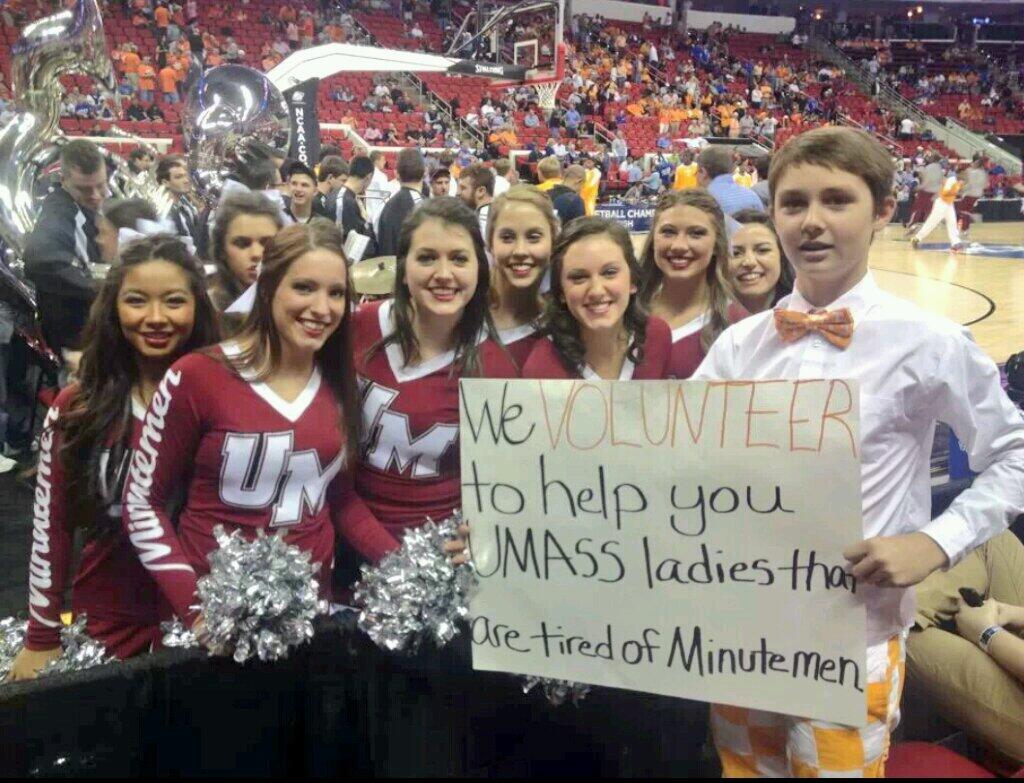 SPALDING
NCAA.COM
ETBALL CHAMP
Minutemen
Minutemen
UM
UM
We VOLUNTEER
to help you
UMASS ladies that
are tired of Minutemen